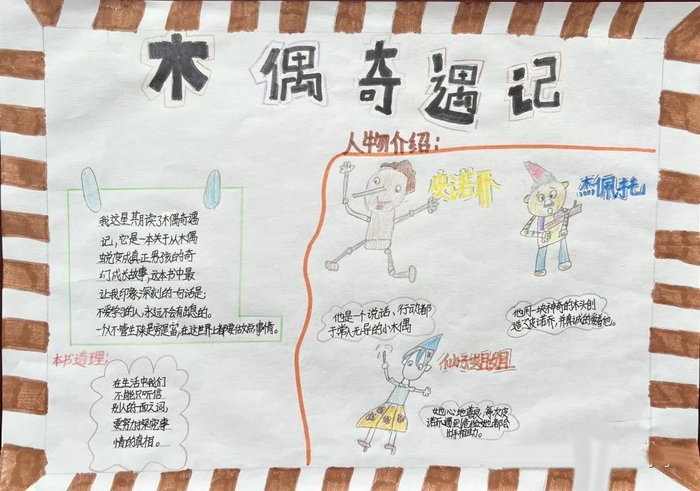 木偶奇遇记
人物介绍:
我这星期读了木偶奇遇
记,它是一本关于从木偶
蜕变成真正男孩的奇
幻成长故事,这本书中最
让我印象深刻的一句话是:
不爱学习的人,永远不会有出息的。
一个人不管生来是穷是富,在这世界上都要做大好事情。
本书道理:
在生活中我们
不能只听信
别人的一面之词,
要努力探究事
情的真相。
皮诺乔
他是一个说话,行动都
于常人无异的小木偶
杰佩托
他用一块神奇的木头创
造了皮诺乔,并真诚的爱着他。
仙女姐姐
她心地善良,每次皮
诺乔遇到危险她都会
出怀相助。